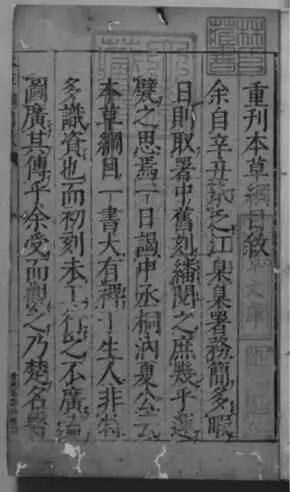 重刊本草綱目敘
余自辛丑蒞之江臬臬署務簡多暇
日則取署中舊刻繙閱之庶幾乎運
甓之思焉一日謁中丞桐汭夏公云
本草綱目一書大有裨于生人非特
多識資也而初刻未工行之不廣盍
圖廣其傳乎余受而觀之乃楚名醫